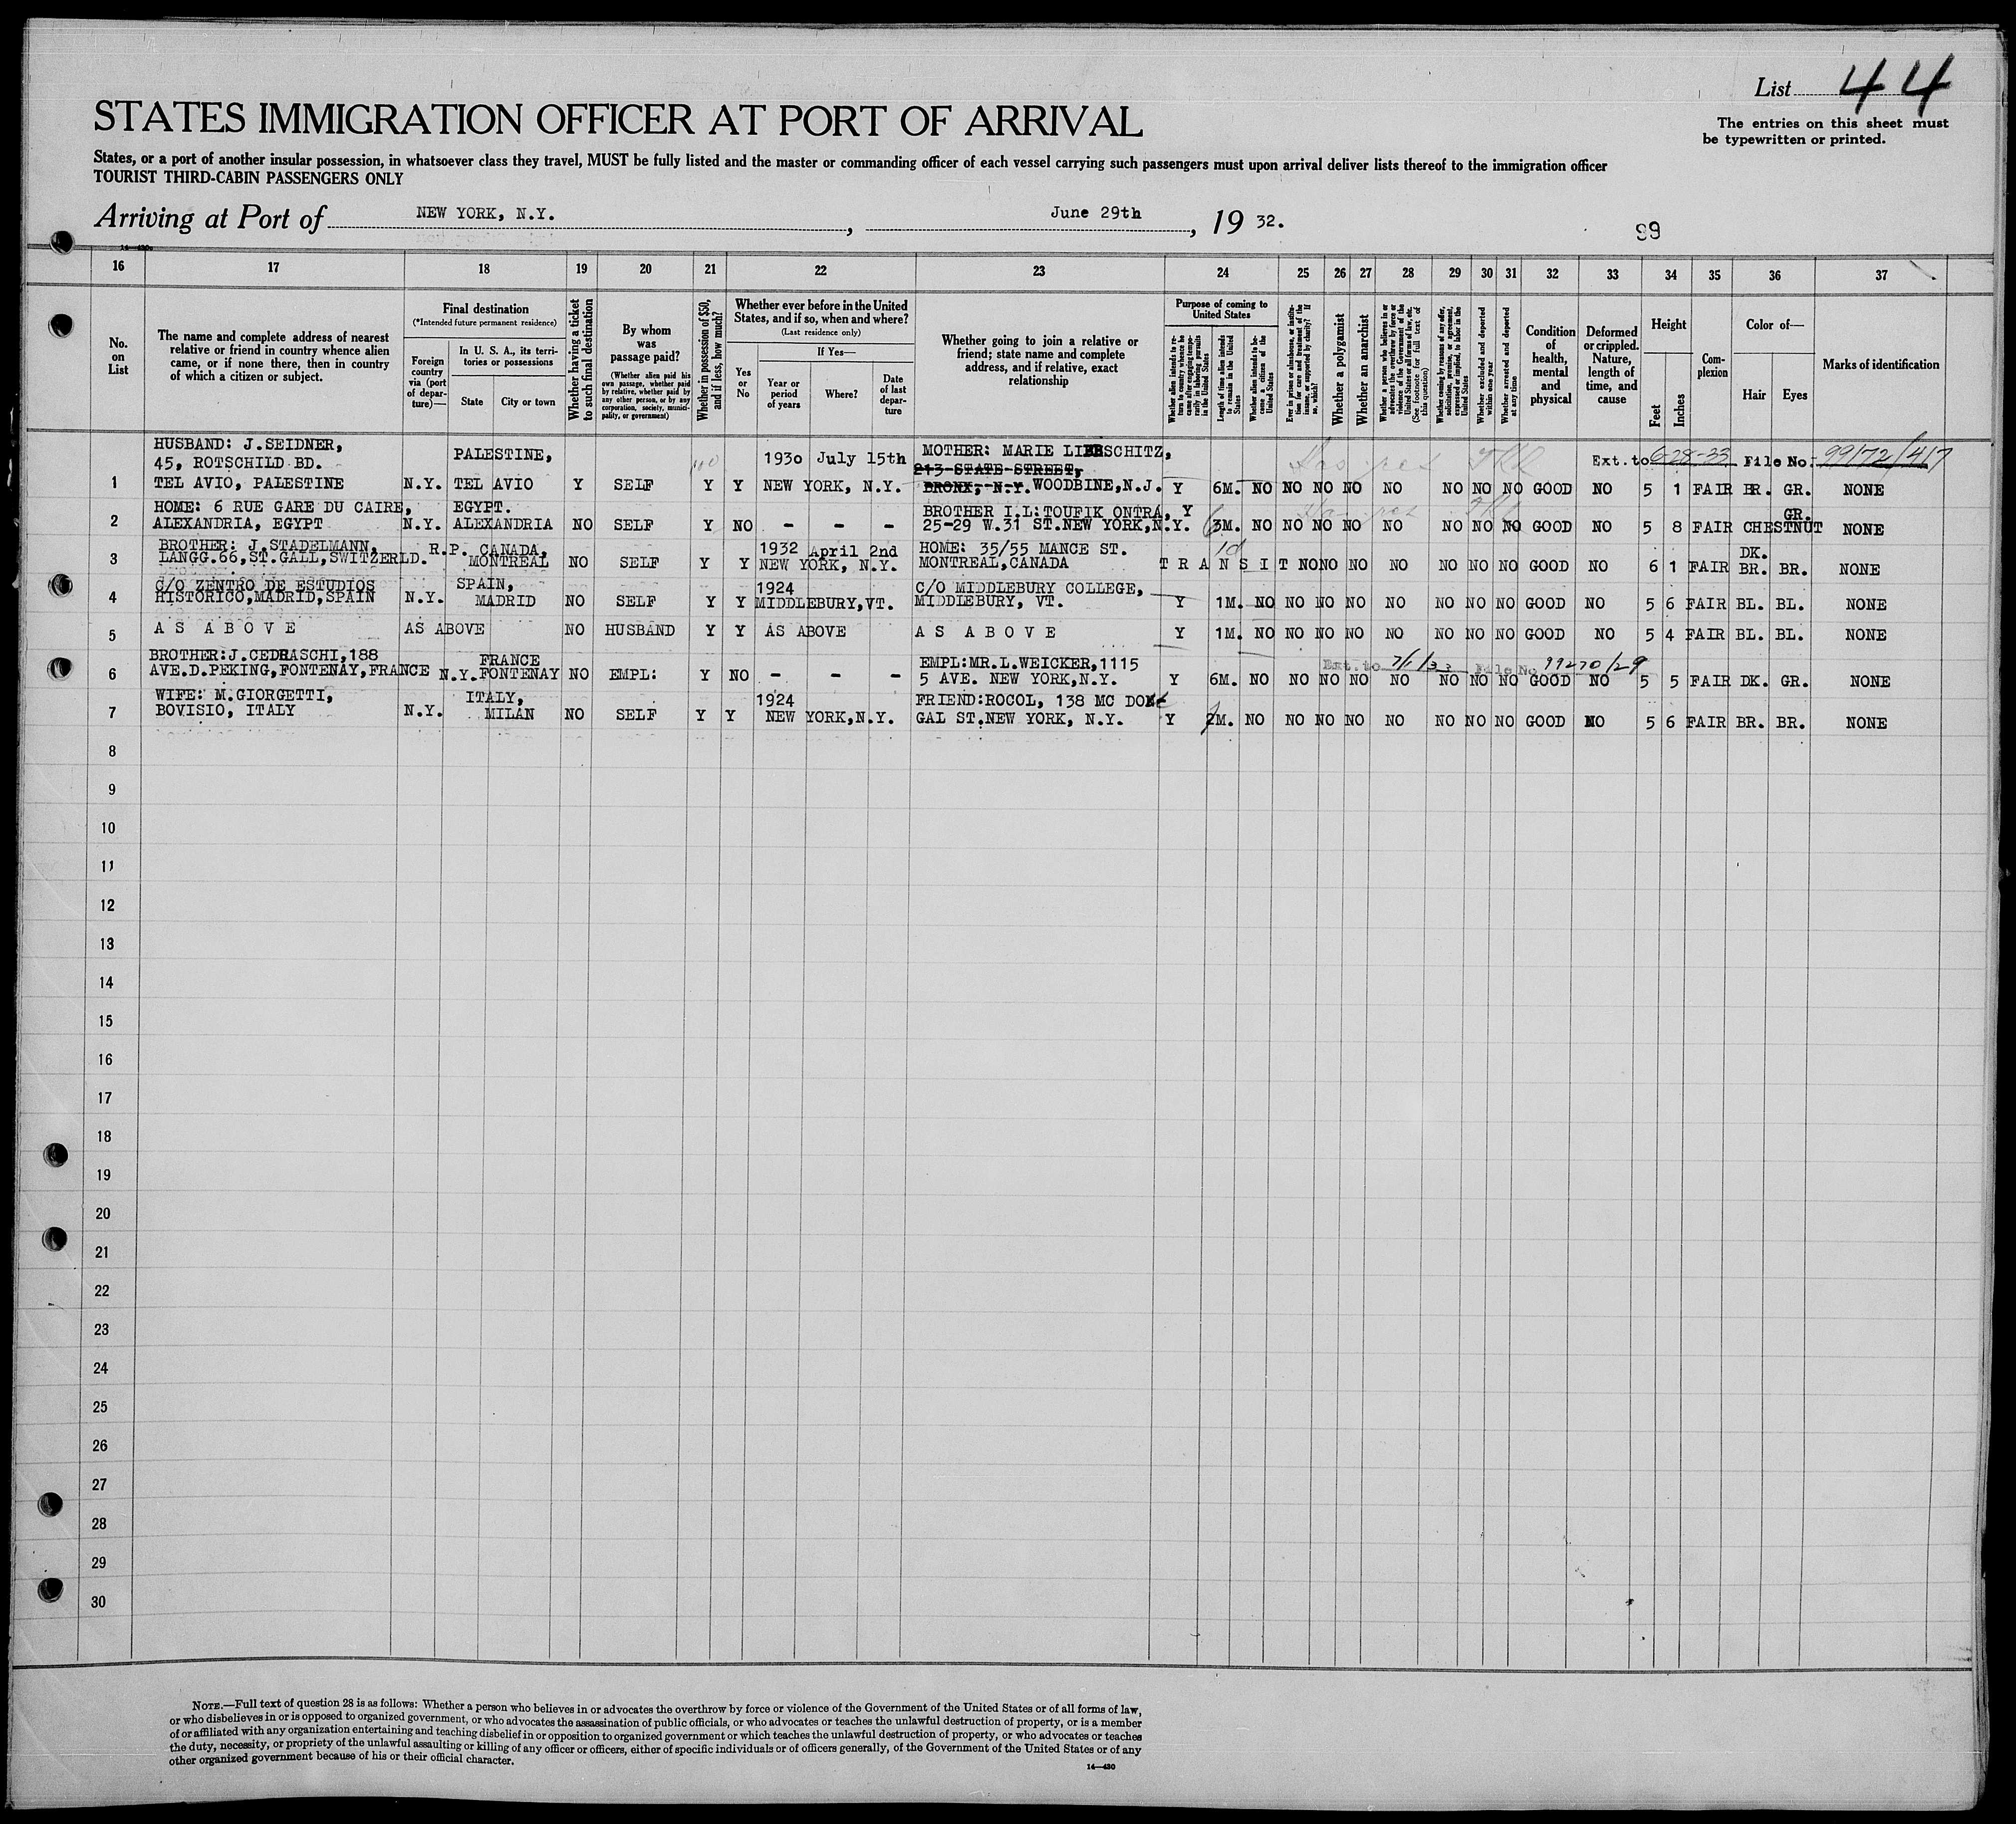 List 44
The entries on this sheet must
be typewritten or printed.
STATES IMMIGRATION OFFICER AT PORT OF ARRIVAL
States, or a port of another insular possession, in whatsoever class they travel, MUST be fully listed and the master or commanding officer of each vessel carrying such passengers must upon arrival deliver lists thereof to the immigration officer
TOURIST THIRD-CABIN PASSENGERS ONLY
Arriving at Port of NEW YORK, N.Y., June 29th, 19 32.
99
14—430
16 17 18 19 20 21 22 23 24 25 26 27 28 29 30 31 32 33 34 35 36 37
No. on List
The name and complete address of nearest relative or friend in country whence alien came, or if none there, then in country of which a citizen or subject.
Final destination
(*Intended future permanent residence)
Foreign country via (port of departure)—
In U. S. A., its territories or possessions
State
City or town
Whether having a ticket to such final destination
By whom was passage paid?
(Whether alien paid his own passage, whether paid by relative, whether paid by any other person, or by any corporation, society, municipality, or government)
Whether in possession of $50, and if less, how much?
Whether ever before in the United States, and if so, when and where?
(Last residence only)
Yes or No
If Yes—
Year or period of years
Where?
Date of last departure
Whether going to join a relative or friend; state name and complete address, and if relative, exact relationship
Purpose of coming to United States
Whether alien intends to return to country whence he came after engaging temporarily in laboring pursuits in the United States
Length of time alien intends to remain in the United States
Whether alien intends to become a citizen of the United States
Ever in prison or almshouse, or institution for care and treatment of the insane, or supported by charity? If so, which?
Whether a polygamist
Whether an anarchist
Whether a person who believes in or advocates the overthrow by force or violence of the Government of the United States or all forms of law, etc. (See footnote for full text of this question)
Whether coming by reasons of any offer, solicitation, promise, or agreement, expressed or implied, to labor in the United States
Whether excluded and deported within one year
Whether arrested and deported at any time
Condition of health, mental and physical
Deformed or crippled. Nature, length of time, and cause
Height
Feet
Inches
Complexion
Color of—
Hair
Eyes
Marks of identification
HUSBAND: J.SEIDNER, PALESTINE, 1930 July 15th MOTHER: MARIE SCHITZ, Ext.to 6-28-33 File No. 99172/417
45, ROTSCHILD BD. 213 STATE STREET,
1 TEL AVIO, PALESTINE N.Y. TEL AVIO Y SELF Y Y NEW YORK, N.Y. BRONX, N.Y. WOODBINE,N.J. Y 6M. NO NO NO NO NO NO NO NO GOOD NO 5 1 FAIR BR. GR. NONE
HOME: 6 RUE GARE DU CAIRE, EGYPT. BROTHER I.L:TOUFIK ONTRA, Y GR.
2 ALEXANDRIA, EGYPT N.Y. ALEXANDRIA NO SELF Y NO - - - 25-29 W.31 ST.NEW YORK,N.Y. 3M. NO NO NO NO NO NO NO NO GOOD NO 5 8 FAIR CHESTNUT NONE
BROTHER: J.STADELMANN, R.P. CANADA, 1932 April 2nd HOME: 35/55 MANCE ST. 1d DK.
3 LANGG.66,ST.GALL,SWITZERLD. MONTREAL NO SELF Y Y NEW YORK, N.Y. MONTREAL,CANADA T R A N S I T NO NO NO NO NO NO NO GOOD NO 6 1 FAIR BR. BR. NONE
C/O ZENTRO DE ESTUDIOS SPAIN, 1924 C/O MIDDLEBURY COLLEGE,
4 HISTORICO,MADRID,SPAIN N.Y. MADRID NO SELF Y Y MIDDLEBURY,VT. MIDDLEBURY, VT. Y 1M. NO NO NO NO NO NO NO NO GOOD NO 5 6 FAIR BL. BL. NONE
5 A S A B O V E AS ABOVE NO HUSBAND Y Y AS ABOVE A S A B O V E Y 1M. NO NO NO NO NO NO NO NO GOOD NO 5 4 FAIR BL. BL. NONE
BROTHER:J.CEDRASCHI,188 FRANCE EMPL:MR.L.WEICKER,1115 Ext.to 7/1/33 File No 99270/29
6 AVE.D.PEKING,FONTENAY,FRANCE N.Y. FONTENAY NO EMPL: Y NO - - - 5 AVE. NEW YORK,N.Y. Y 6M. NO NO NO NO NO NO NO NO GOOD NO 5 5 FAIR DK. GR. NONE
WIFE: M.GIORGETTI, ITALY, 1924 FRIEND:ROCOL, 138 MC
7 BOVISIO, ITALY N.Y. MILAN NO SELF Y Y NEW YORK,N.Y. GAL ST.NEW YORK, N.Y. Y 2M. NO NO NO NO NO NO NO NO GOOD NO 5 6 FAIR BR. BR. NONE
8
9
10
11
12
13
14
15
16
17
18
19
20
21
22
23
24
25
26
27
28
29
30
NOTE.—Full text of question 28 is as follows: Whether a person who believes in or advocates the overthrow by force or violence of the Government of the United States or of all forms of law,
or who disbelieves in or is opposed to organized government, or who advocates the assassination of public officials, or who advocates or teaches the unlawful destruction of property, or is a member
of or affiliated with any organization entertaining and teaching disbelief in or opposition to organized government or which teaches the unlawful destruction of property, or who advocates or teaches
the duty, necessity, or propriety of the unlawful assaulting or killing of any officer or officers, either of specific individuals or of officers generally, of the Government of the United States or of any
other organized government because of his or their official character.
14—430